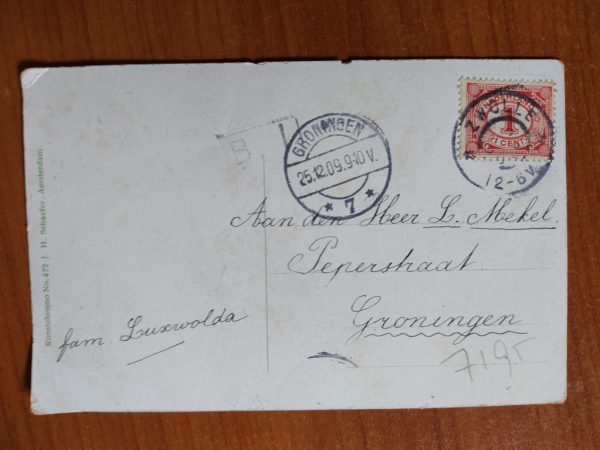 Kunstchromo No. 472 J. H. Schaefer, Amsterdam.
B
GRONINGEN
25.12.09.9-10V.
* 7 *
NEDERLAND
1
CENT
ZWOLLE
12-6V.
Aan den Heer L. Mekel.
Peperstraat
Groningen
fam Luxwolda